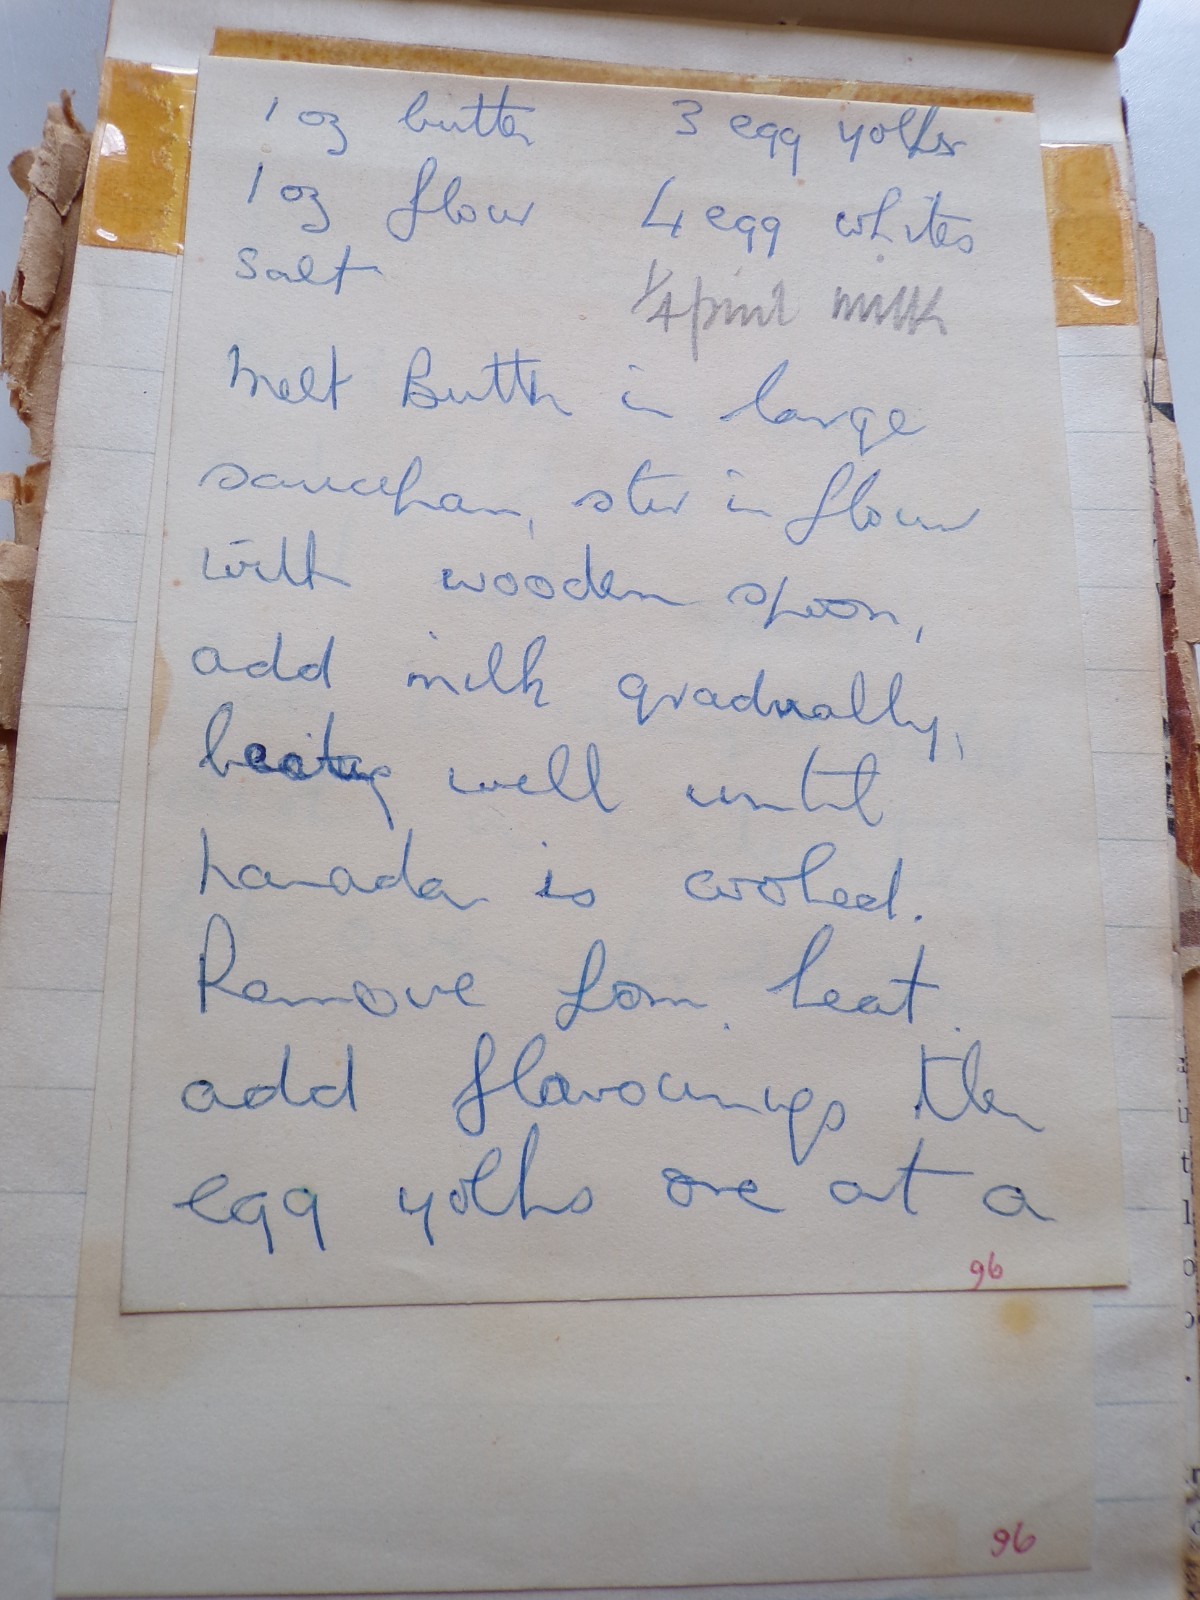 1 oz butter 3 egg yolks
1 oz flour 4 egg whites
salt 1/4 pint milk
Melt Butter in large
saucepan, stir in flour
with wooden spoon,
add milk gradually,
beating well until
panada is cooked.
Remove from heat.
add flavourings then
egg yolks one at a
96
96